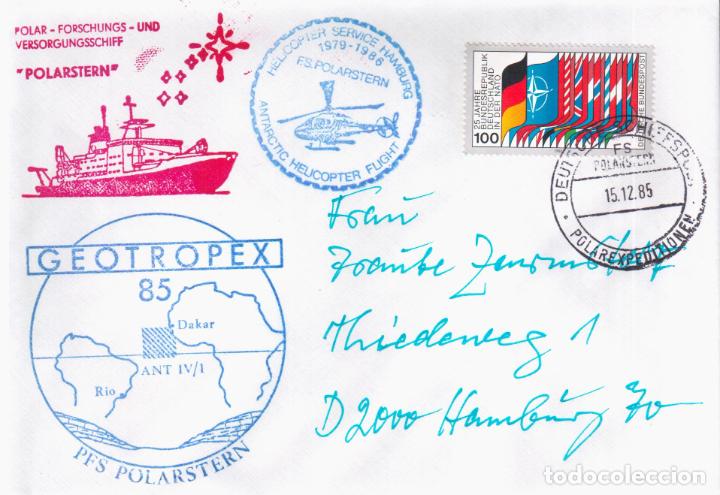 POLAR - FORSCHUNGS - UND
VERSORGUNGSSCHIFF
"POLARSTERN"
HELICOPTER SERVICE HAMBURG
1979-1986
F.S. POLARSTERN
ANTARCTIC HELICOPTER FLIGHT
25 JAHRE
BUNDESREPUBLIK
DEUTSCHLAND
IN DER NATO
100
DEUTSCHE BUNDESPOST
FS
POLARSTERN
15.12.85
POLAREXPEDITIONEN
GEOTROPEX
85
Dakar
ANT IV/1
Rio
PFS POLARSTERN
Frau
Frauke
Thiedeweg 1
D 2000 Hamburg 70
todocoleccion